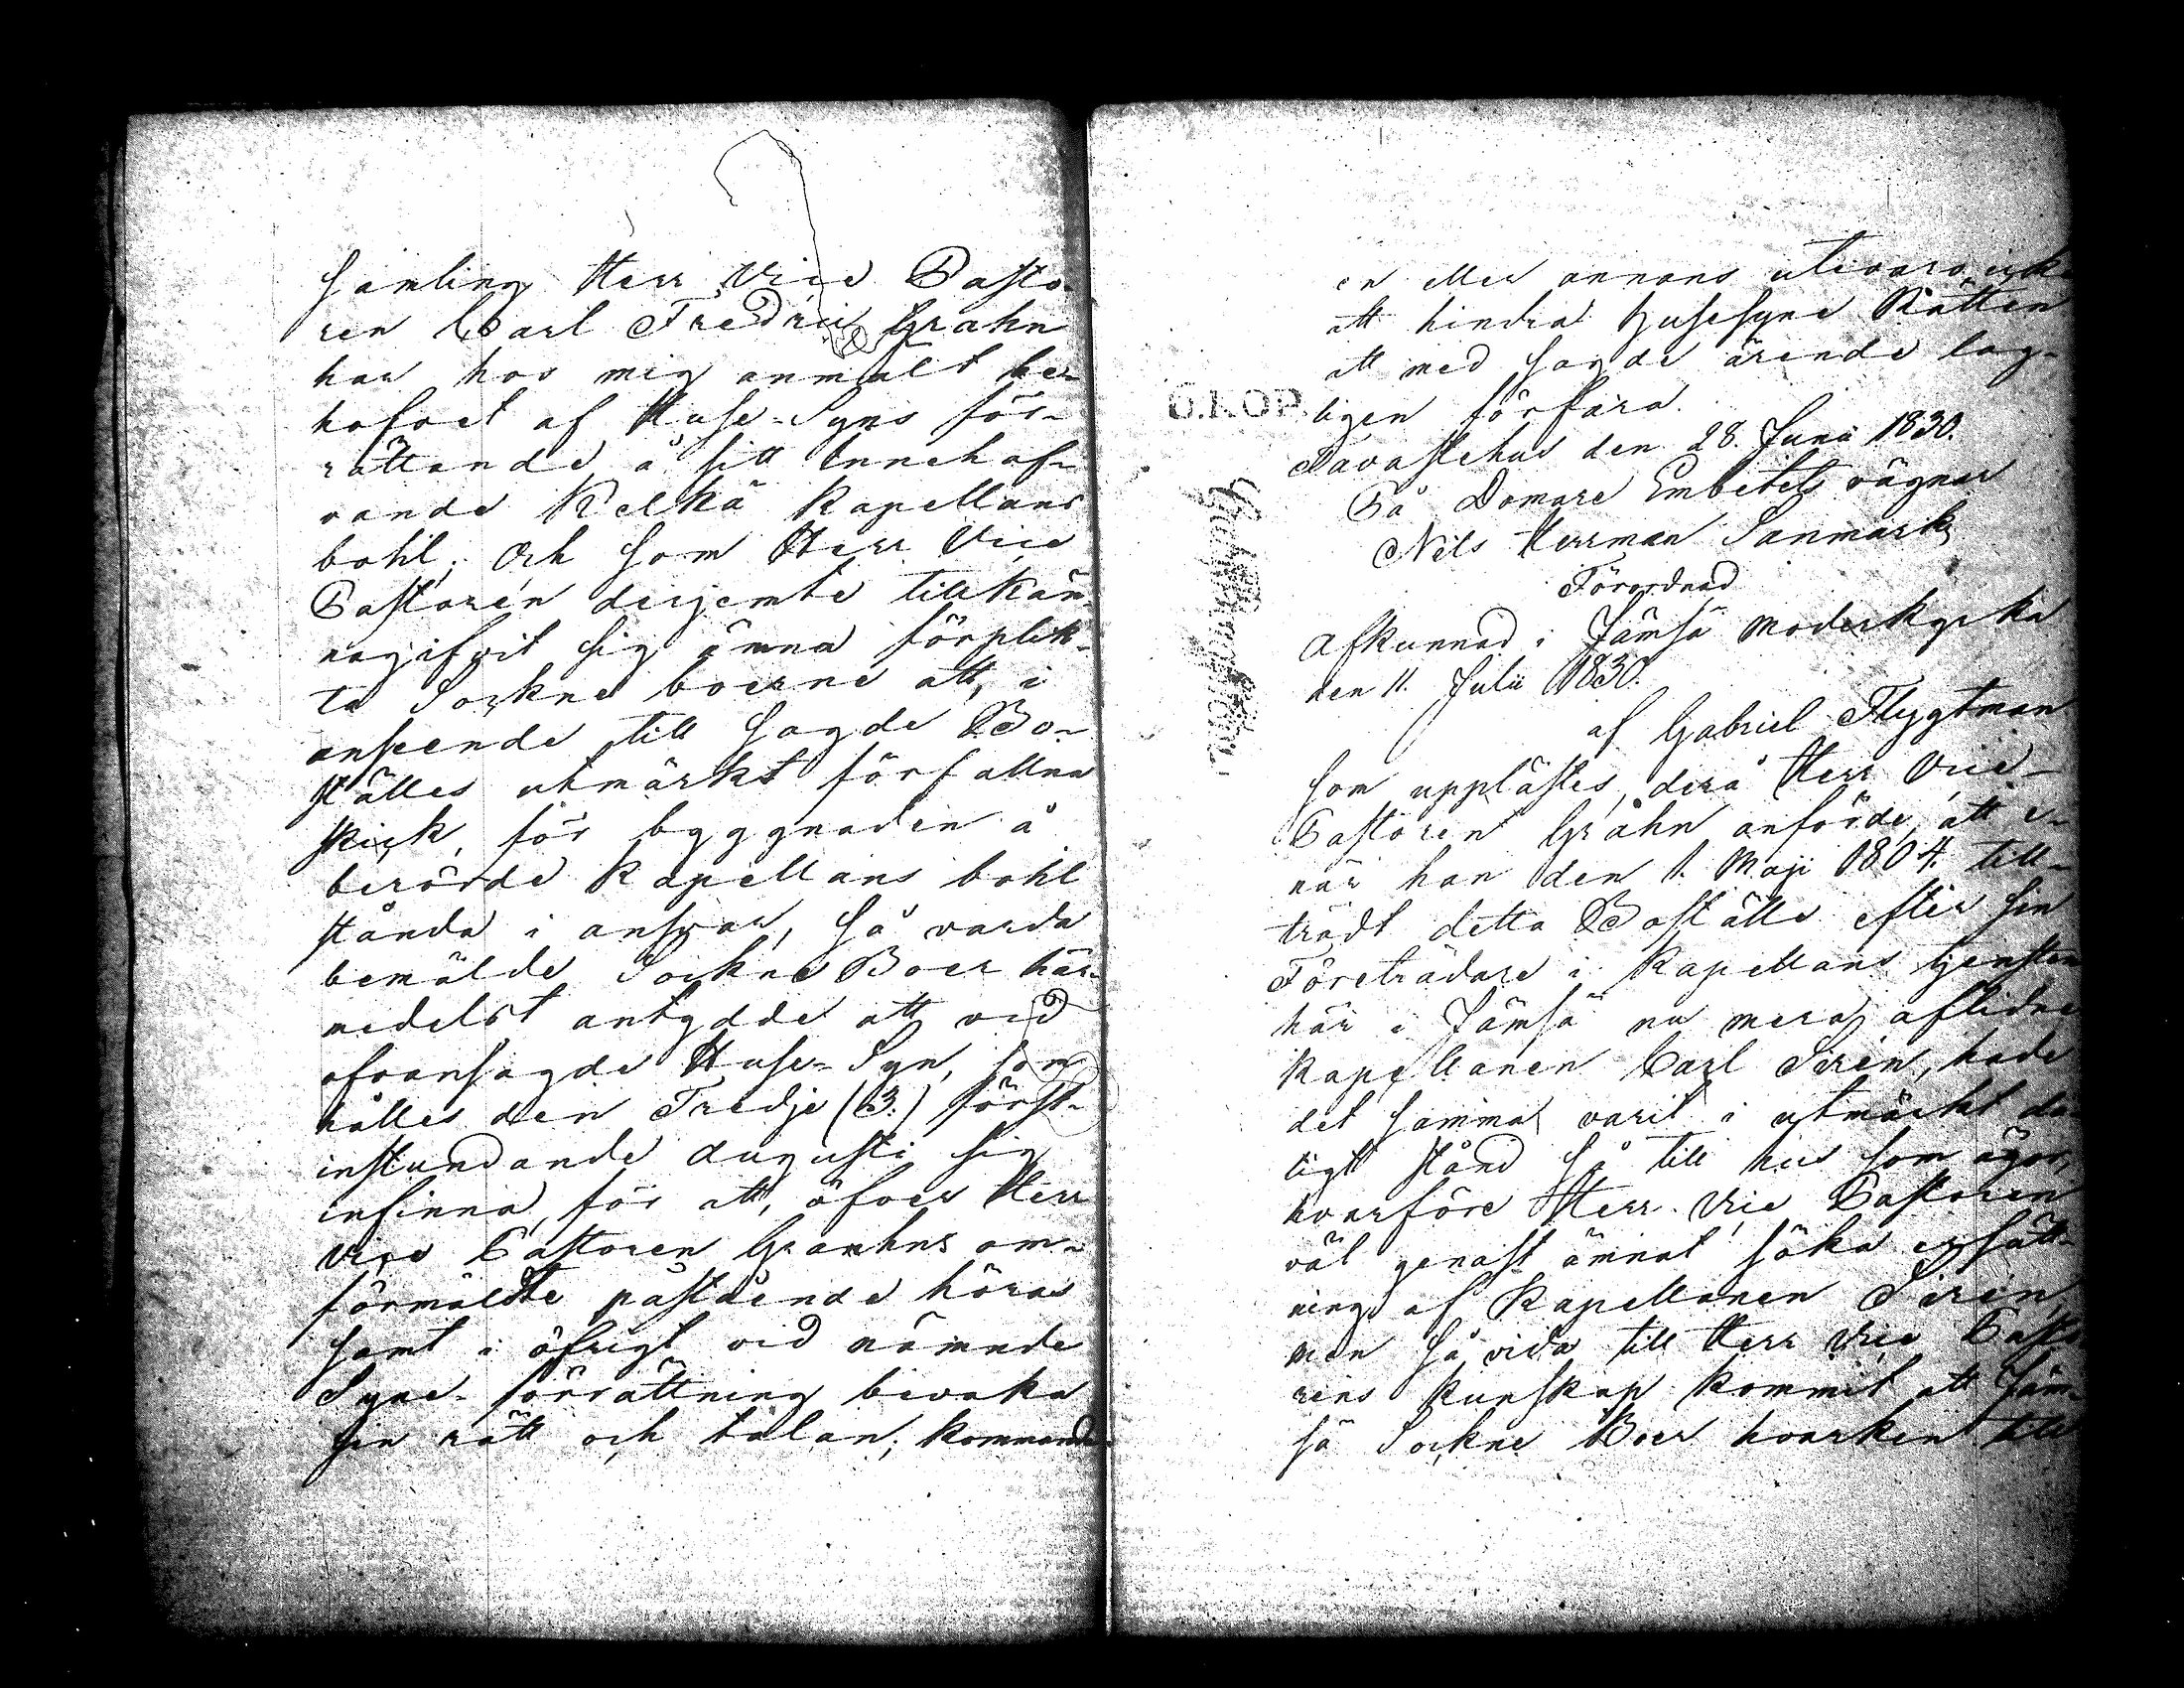 samling Herr Vice Pasto-
ren Carl Fredric Grahn
har hos mig anmält be-
hofvet af Huse-Syns för-
rättande å sitt Innehaf-
vande Kelkä Kapellans
bohl; Och som Herr Vice
Pastoren derjemte tillkän-
nagifvit sig ämna förplik-
ta Sockne boerne att, i
anseende till sagde Bo-
ställes utmärkt förfallna
skick, för byggnaden å
berörde Kapellans bohl
stånda i ansvar, så varda
bemälde Sockne Boer här-
medelst antydde att vid
ofvansagde Huse-Syn, som
hålles den Tredje (3.) först-
instundande Augusti sig
infinna, för att, öfver Herr
Vice Pastoren Grahns om-
förmäldte påstående höras
samt i öfrigt vid nämnde
Syne-förrättning bevaka
sin rätt och talan; kommande
en eller annans utevaro icke
att hindra Husesyne Rätten
att med sagde ärende lag-
ligen förfara.
Tavastehus den 28. Junii 1830.
På Domare Embetets vägnar
Nils Herrman Sanmark
Förordnad
Afkunnad i Jämsä Moderkyrka
den 11. Julii 1830.
af Gabriel Flygtman
som upplästes, derå Herr Vice-
Pastoren Grahn anförde, att e-
när han den 1. Maji 1804. till-
trädt detta Boställe efter sin
Företrädare i Kapellans tjensten
här i Jämsä nu mera aflidne
Kapellanen Carl Sirén, hade
det samma varit i utmärkt då-
ligt stånd så till hus som ägor,
hvarföre Herr Vice Pastoren
väl genast ämnat söka ersätt-
ning af Kapellanen Sirén,
men så vida till Herr Vice Pasto
rens kunskap kommit att Jäm-
sä Sockne Boer hvarken till
G.KOP.